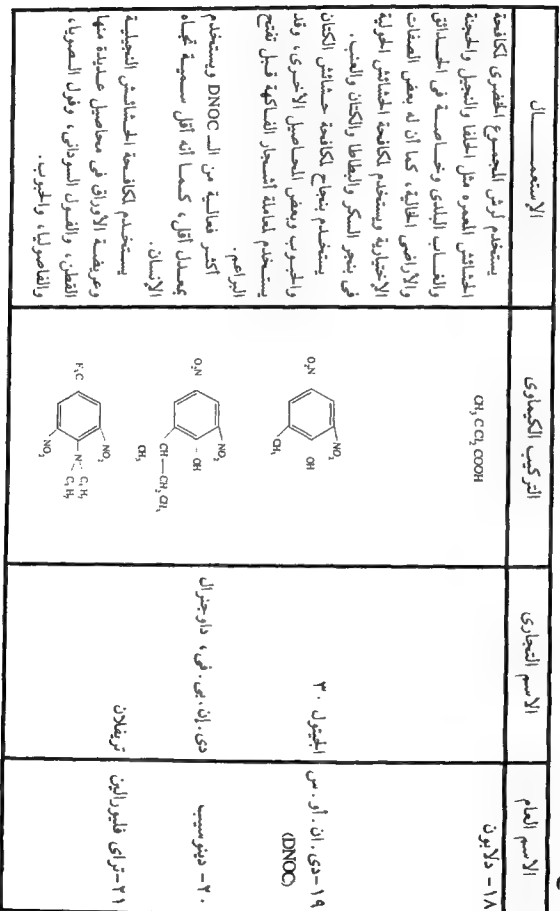 الاسم العام
الاسم التجارى
التركيب الكيماوى
الإستعمــــــال
١٨- دلابون
CH₃ C Cl₂ COOH
يستخدم لرش المجموع الخضرى لمكافحة
الحشائش المعمره مثل الحلفا والنجيل والحجنة
والغــاب البلدى وخـاصــة فى الحــدائق
والأراضى الخالية، كما أن له بعض الصفات
الإختيارية ويستخدم لمكافحة الحشائش الحولية
فى بنجر السكر والبطاطا والكتان والعنب.
١٩-دى. ان. أو. س
(DNOC)
الجيتول ٣٠
O₂N
NO₂
OH
CH₃
يستخدم بنجاح لمكافحة حشائش الكتان
والحبـوب وبعض المحاصيل الأخـرى، وقد
يستخدم لمعاملة أشـجار الفـاكهة قبـل تفتح
البراعم.
٢٠- دينوسيب
دى. إن. بى. فى، داوجنرال
O₂N
NO₂
OH
CH—CH₂CH₃
CH₃
أكثر فعالية من الـ DNOC ويستخدم
بمعدل أقل، كـمـا أنه أقل سـميـة تجـاه
الإنسان.
٢١-تراى فليورالين
تريفلان
F₃C
NO₂
N
C₃H₇
C₃H₇
NO₂
يستخدم لمكافحة الحـشـائـش النجيليـة
وعريضـة الأوراق فى محاصيل عـديدة منها
القطن، والفـول السودانى، وفول الصـويا،
والفاصوليا، والحبوب.